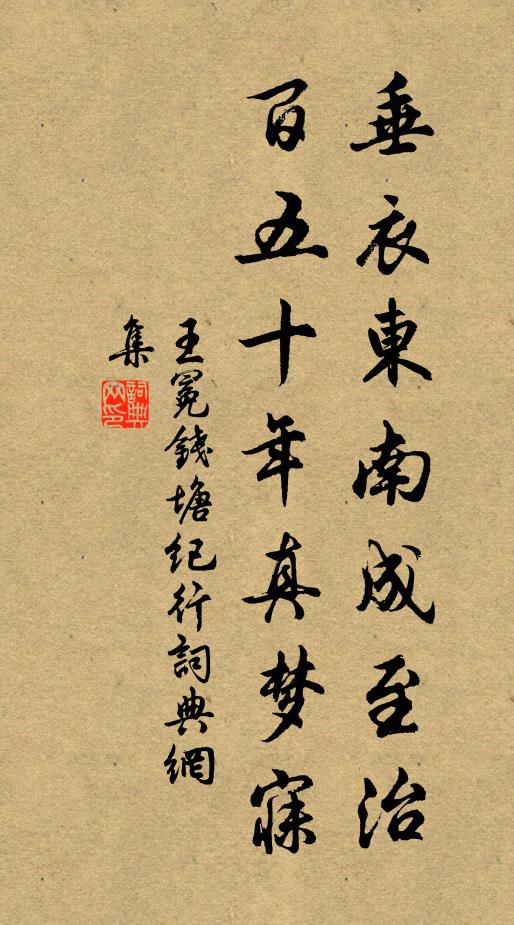 垂衣東南成至治
百五十年真梦寐
王冕錢塘紀行詞典網
集
詞典
网印